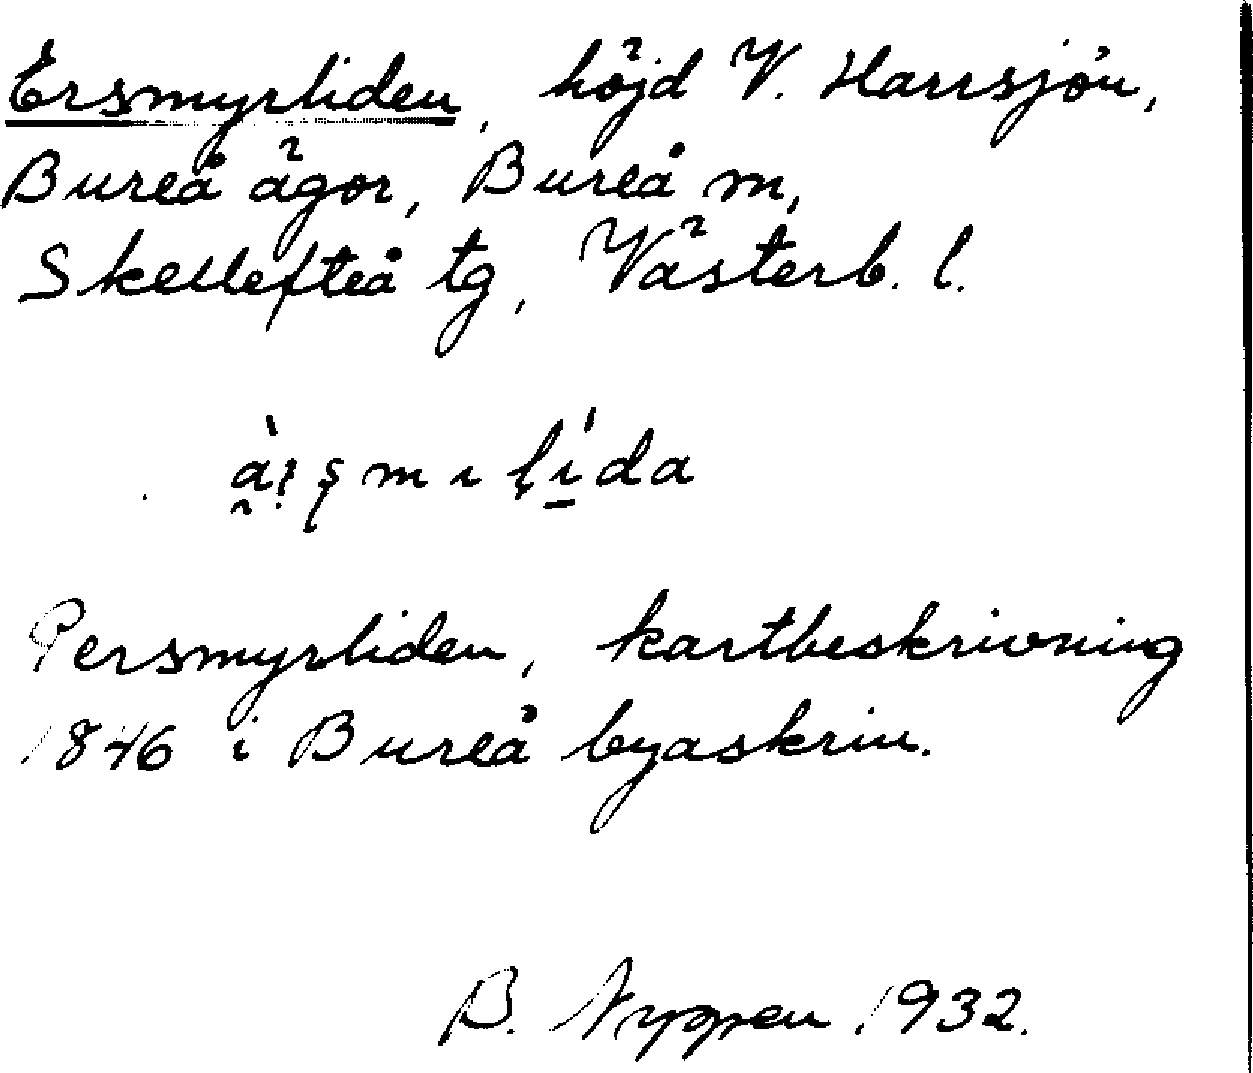 Ersmyrliden, höjd V. Harrsjön,
Bureå ägor, Bureå m,
Skellefteå tg, Västerb. l.
Persmyrliden, kartbeskrivning
1846 i Bureå byaskrin.
B. Nyppen 1932.